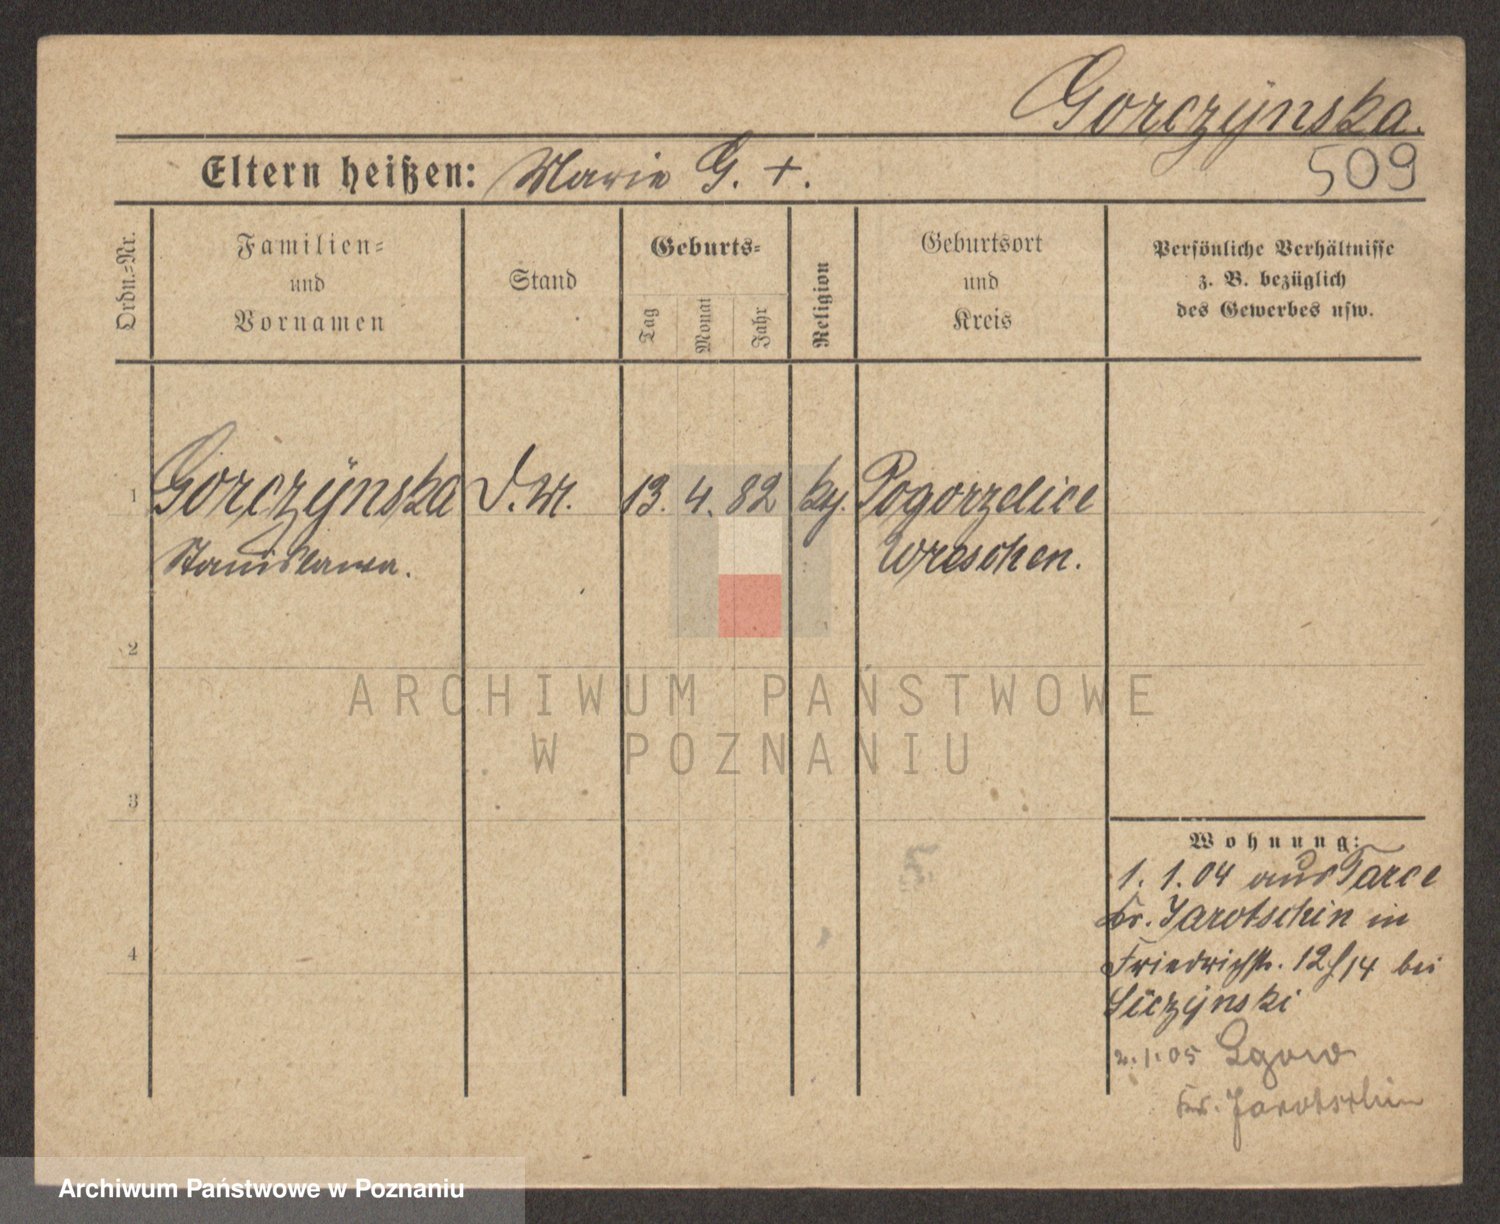 Gorczÿnska.
509
Eltern heißen: Marie G. +.
Ordn.=Nr.
Familien=
und
Vornamen
Stand
Geburts=
Tag
Monat
Jahr
Religion
Geburtsort
und
Kreis
Persönliche Verhältnisse
z. B. bezüglich
des Gewerbes usw.
1 Gorczÿnska D.M. 13. 4. 82 Pogorzelice
Stanislawa. Wreschen.
2
ARCHIWUM PAŃSTWOWE
W POZNANIU
3
Wohnung:
1. 1. 04 aus Tarce
Kr. Jarotschin in
4
Friedrichstr. bei
2.1.05 Lgow
Kr. Jarotschin
Archiwum Państwowe w Poznaniu